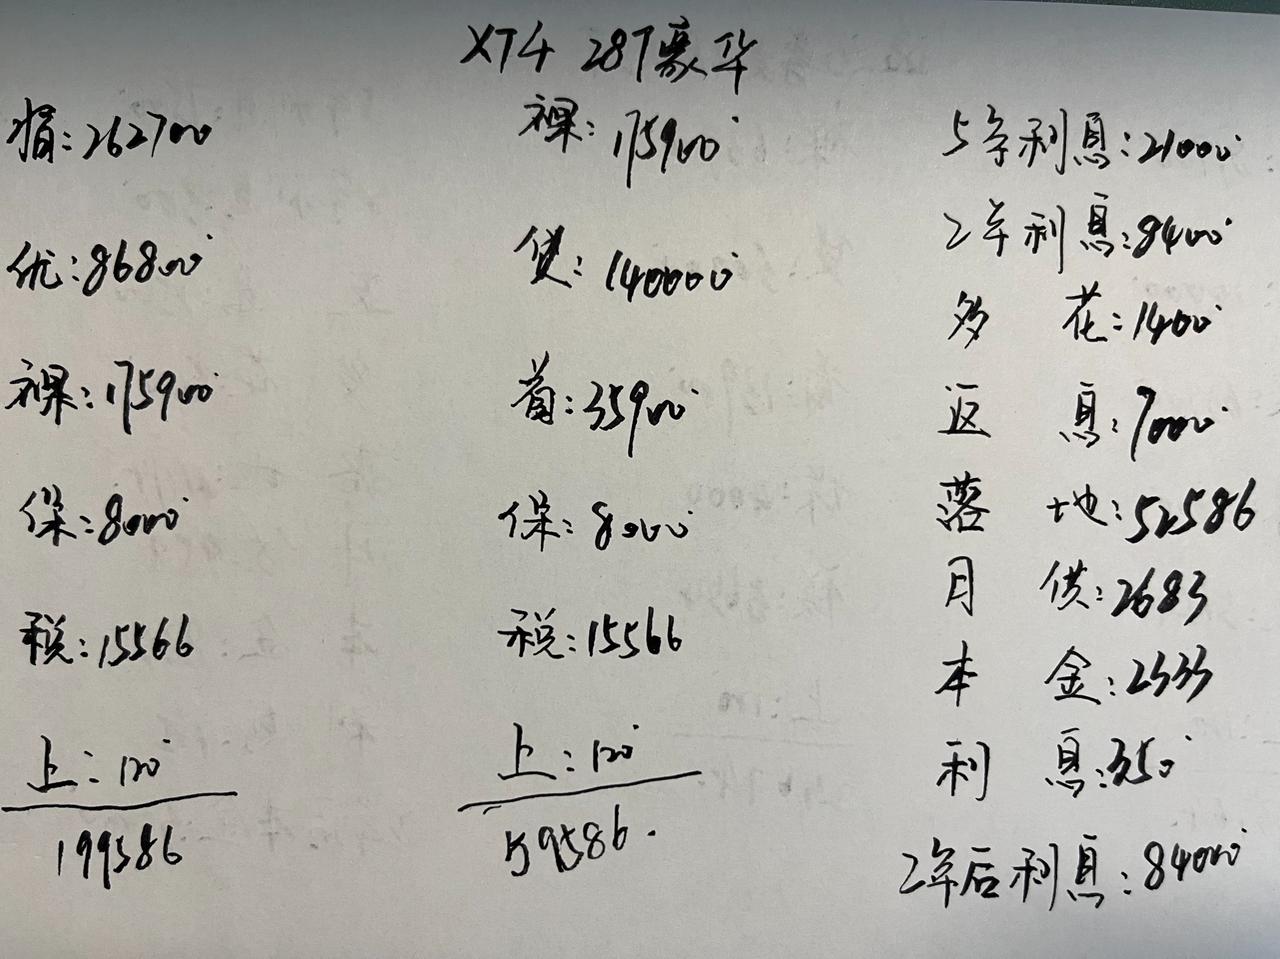 XT4 28T豪华
指:262700
优:86800
裸:175900
保:8000
税:15566
上:120
199586
裸:175900
贷:140000
首:35900
保:8000
税:15566
上:120
59586.
5年利息:21000
2年利息:8400
多花:1400
返息:7000
落地:52586
月供:2683
本金:2333
利息:350
2年后利息:84000